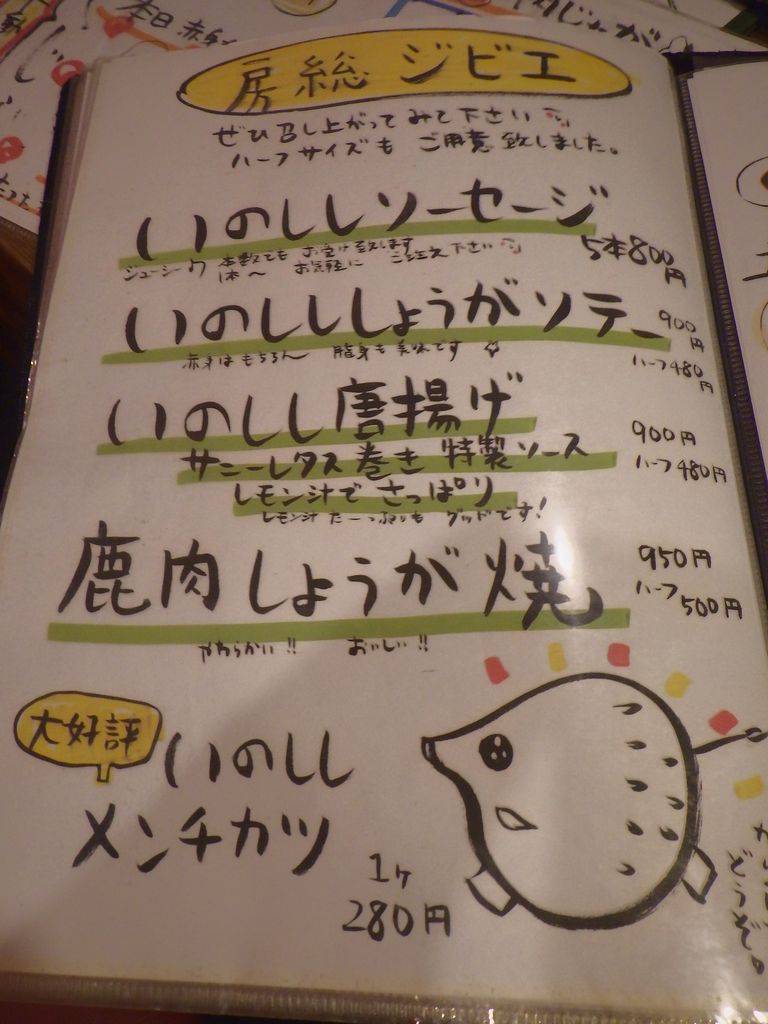 本日
房総 ジビエ
ぜひ召し上がってみて下さい
ハーフサイズも ご用意致しました。
いのししソーセージ
ジューシー♡ 本数でも お受け致します
1本〜 お気軽に ご注文下さい
5本800円
いのしししょうがソテー
900円
赤身はもちろん 脂身も美味です
ハーフ480円
いのしし唐揚げ
900円
サニーレタス巻き 特製ソース
ハーフ480円
レモン汁でさっぱり
レモン汁 たーっぷりも グッドです!
鹿肉しょうが焼
950円
ハーフ500円
やわらかい!! おいしい!!
大好評
いのしし
メンチカツ
1ヶ
280円
どうぞ。